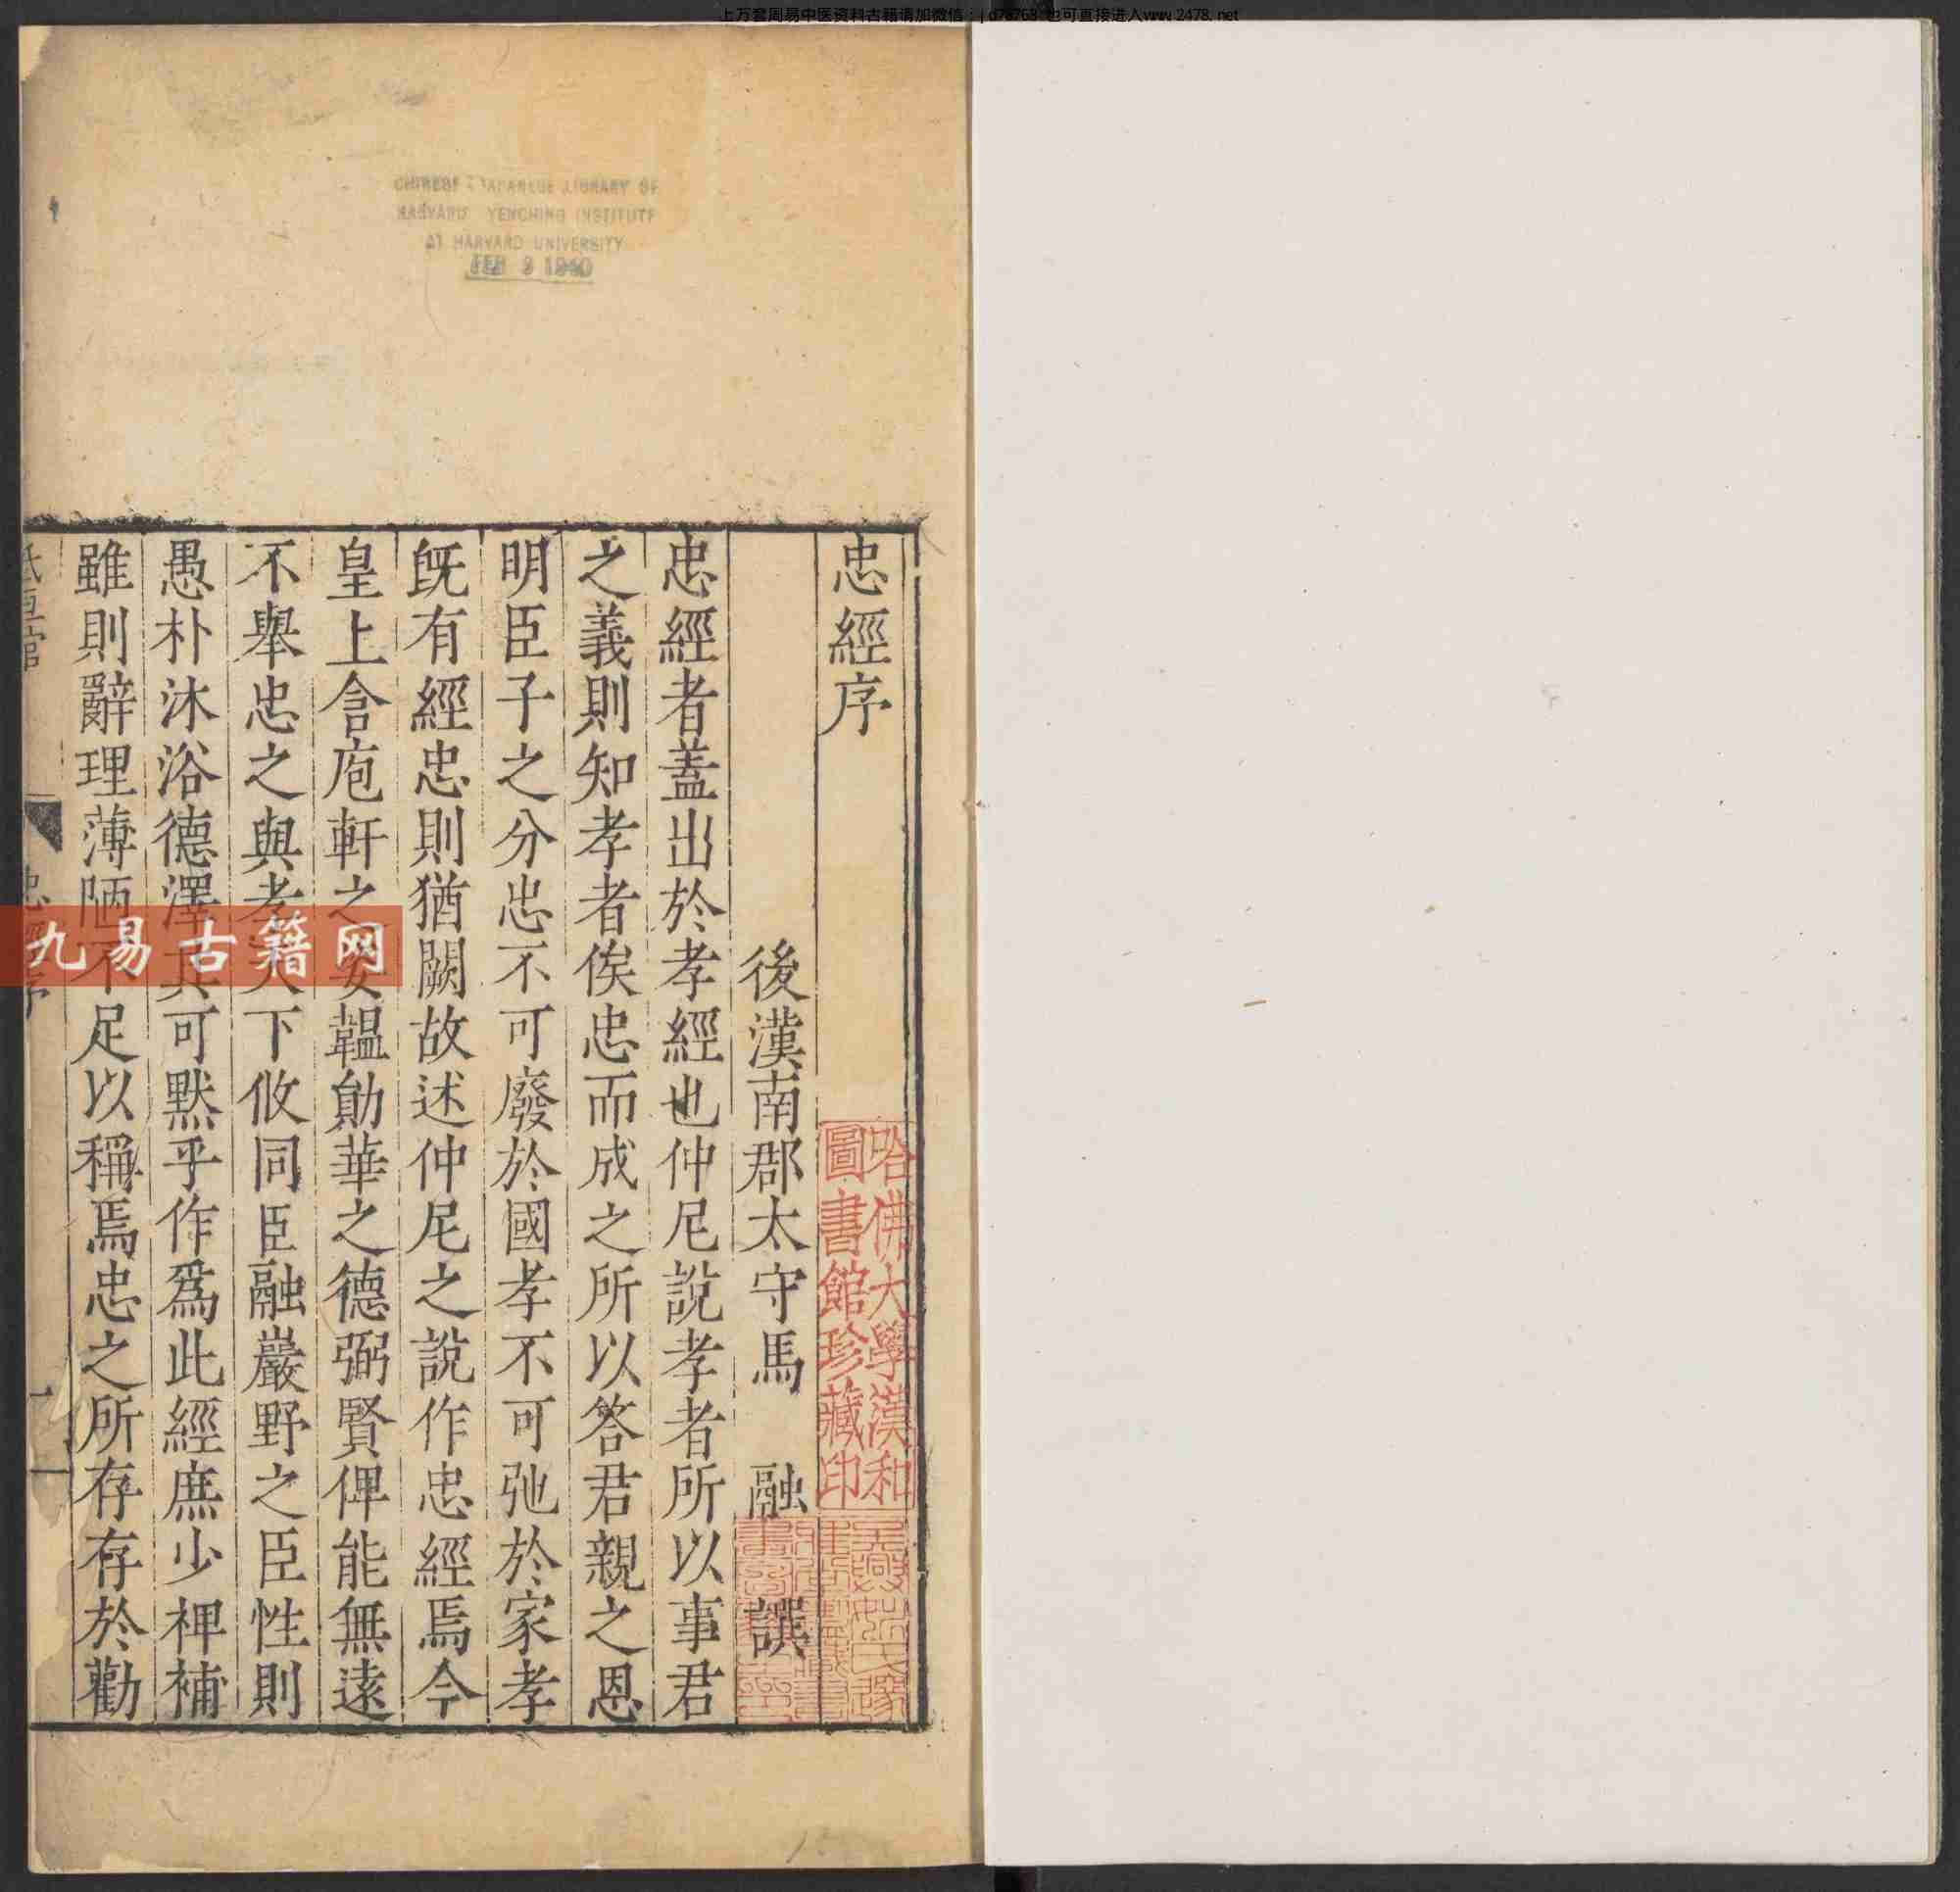 上万套周易中医资料古籍请加微信
也可直接进入www.2478.net
CHINESE-JAPANESE LIBRARY OF
HARVARD YENCHING INSTITUTE
AT HARVARD UNIVERSITY
FEB 9 1940
忠經序
後漢南郡太守馬融譔
忠經者蓋出於孝經也仲尼說孝者所以事君
之義則知孝者俟忠而成之所以答君親之恩
明臣子之分忠不可廢於國孝不可弛於家孝
旣有經忠則猶闕故述仲尼之說作忠經焉今
皇上含庖軒之姿韞勛華之德弼賢俾能無遠
不舉忠之與孝天下攸同臣融巖野之臣性則
愚朴沐浴德澤其可默乎作爲此經庶少裨補
雖則辭理薄陋不足以稱焉忠之所存存於勸
哈佛大學漢和
圖書館珍藏印
九易古籍网